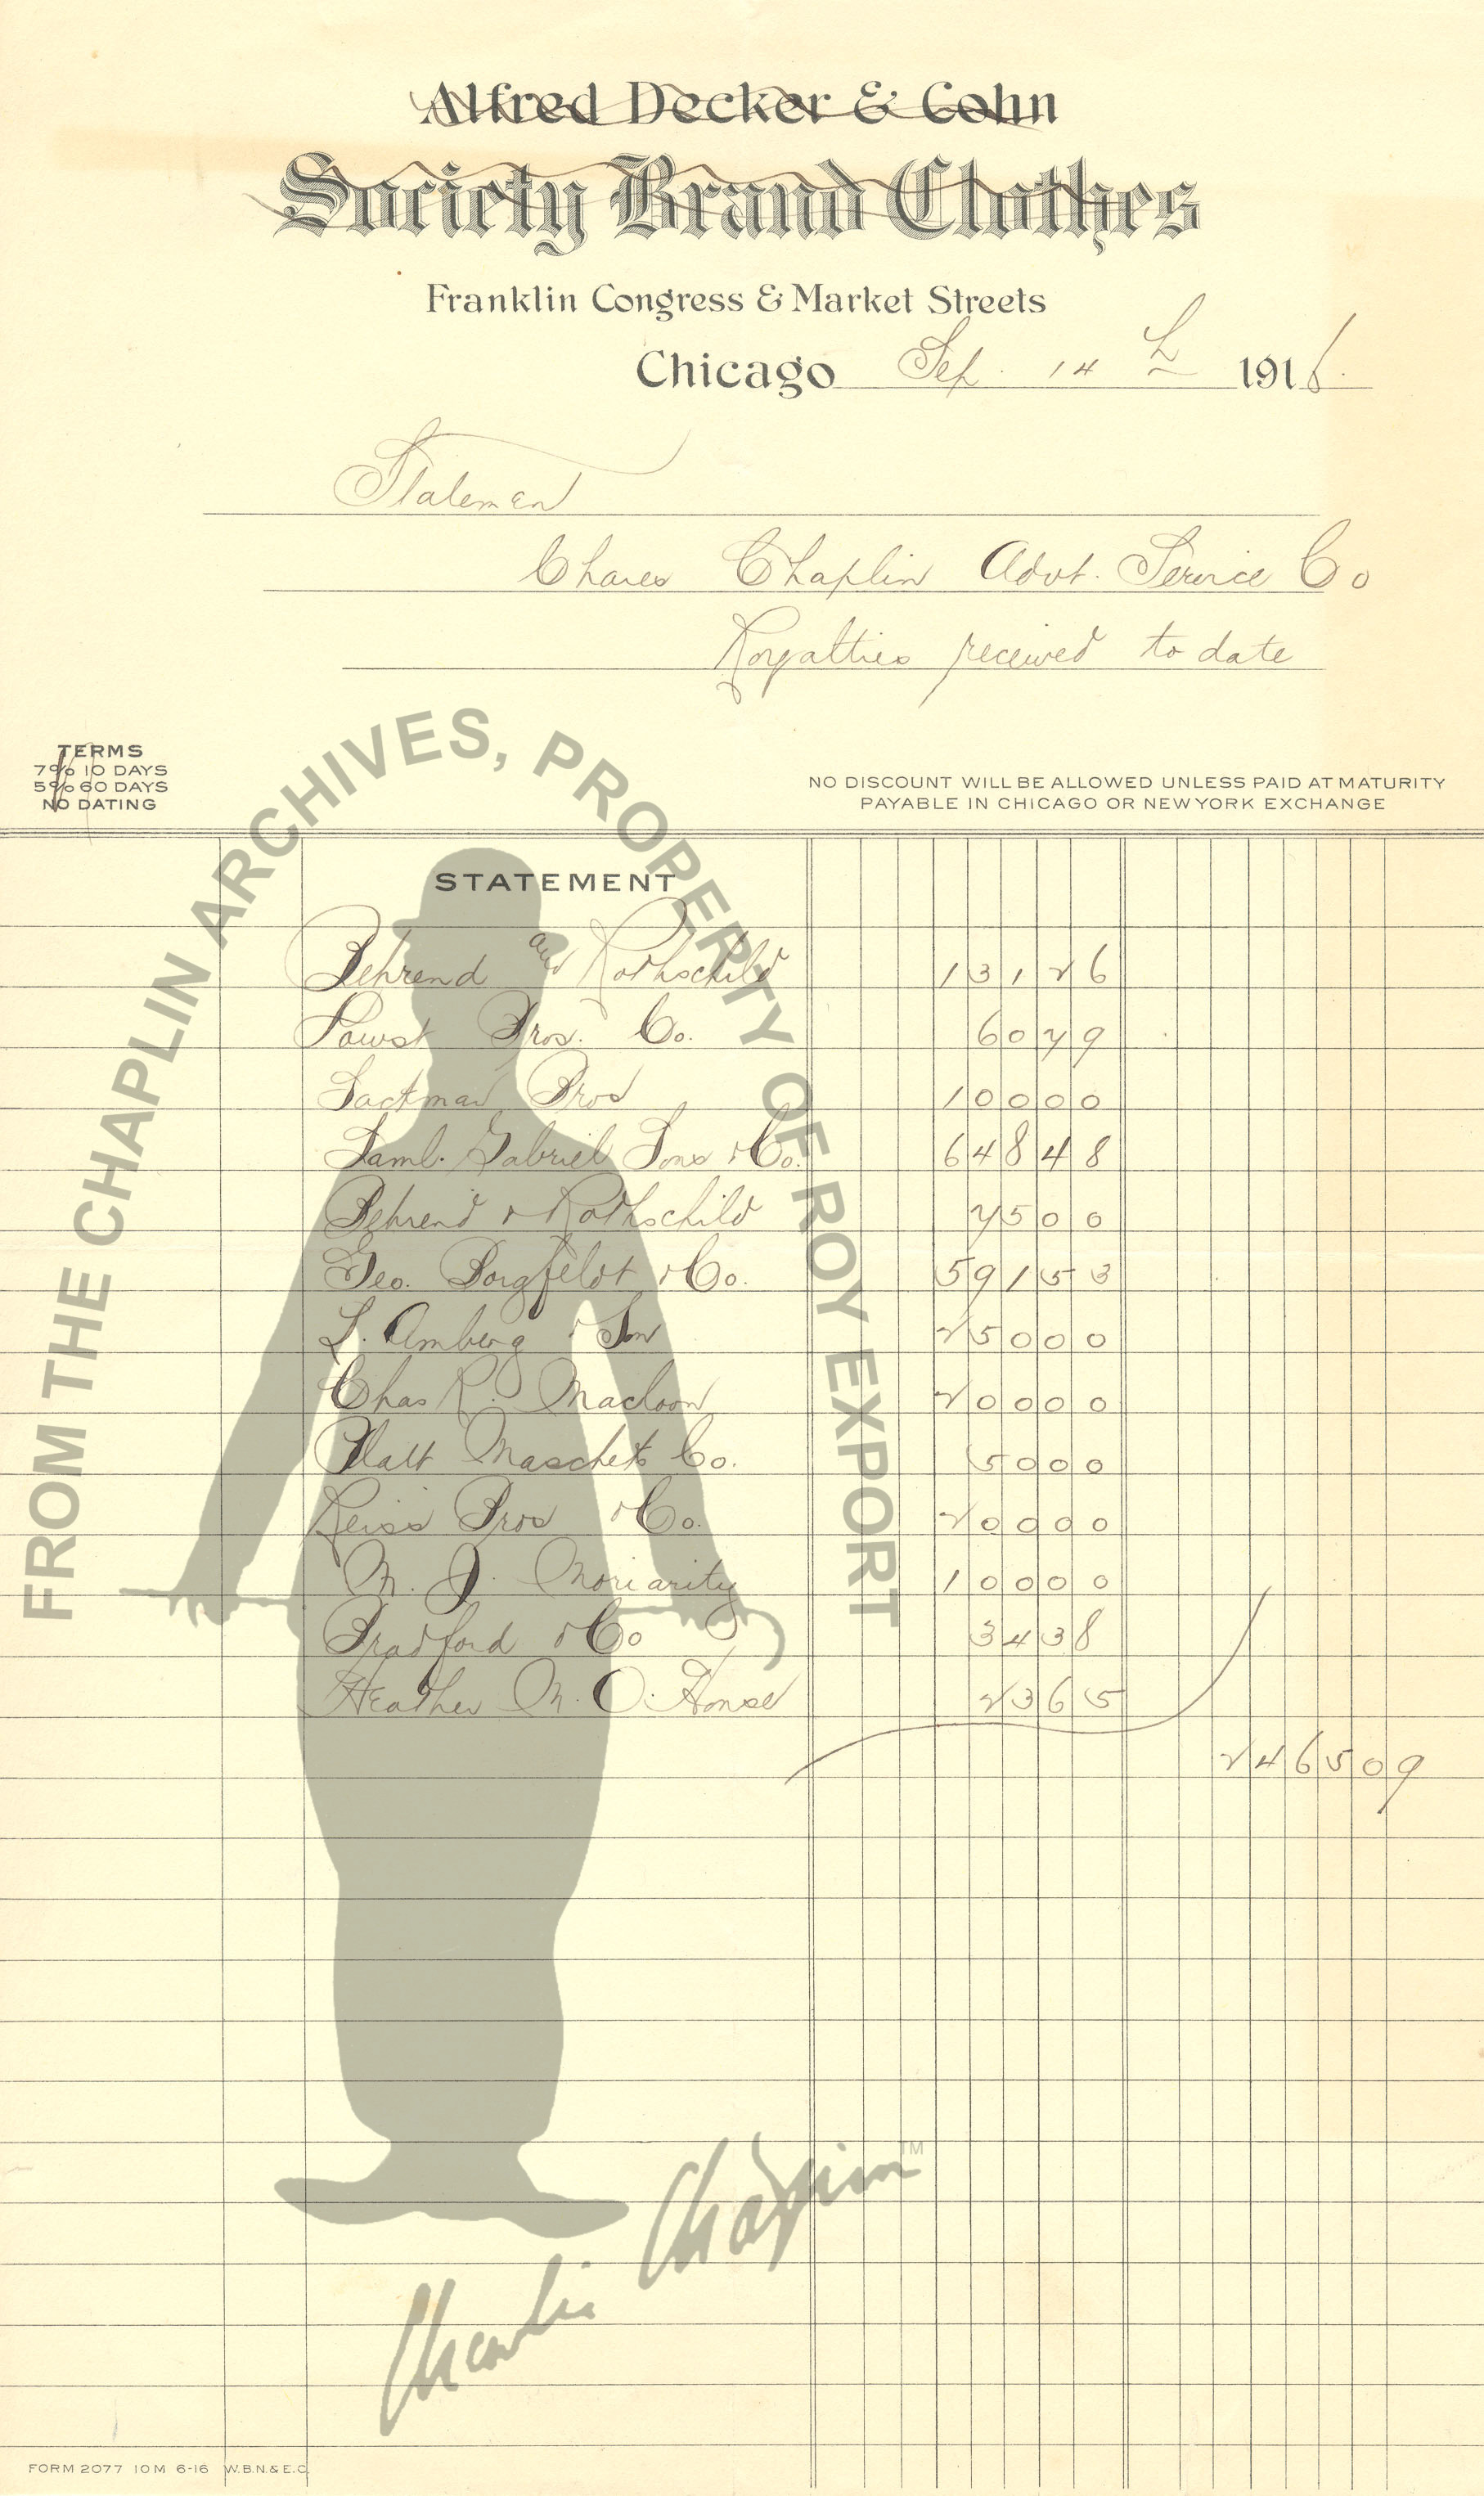 Alfred Decker & Cohn
Society Brand Clothes
Franklin Congress & Market Streets
Chicago Sep. 14 th 1916.
Statemen
Chares Chaplin Advt. Service Co
Royalties received to date
TERMS
7% 10 DAYS
5% 60 DAYS
NO DATING
NO DISCOUNT WILL BE ALLOWED UNLESS PAID AT MATURITY
PAYABLE IN CHICAGO OR NEW YORK EXCHANGE
FROM THE CHAPLIN ARCHIVES, PROPERTY OF ROY EXPORT
STATEMENT
Behrend and Rothschild 131 26
Bros. Co. 60 79
Sackman Bros 100 00
Saml. Gabriel Sons & Co. 648 48
Behrend & Rothschild 75 00
Geo. Borgfeldt & Co. 591 53
L. Amberg & Son 250 00
Chas R. Macloon 200 00
Platt Maschek Co. 50 00
Reiss Bros & Co. 200 00
M. J. Moriarity 100 00
Bradford & Co 34 38
Heather M. O. House 23 65
2465 09
Charlie Chaplin TM
FORM 2077 10M 6-16 W.B.N.& E.C.